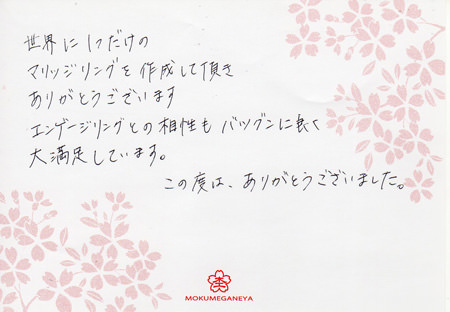 世界に1つだけの
マリッジリングを作成して頂き
ありがとうございます
エンゲージリングとの相性もバツグンに良く
大満足しています。
この度は、ありがとうございました。
MOKUMEGANEYA